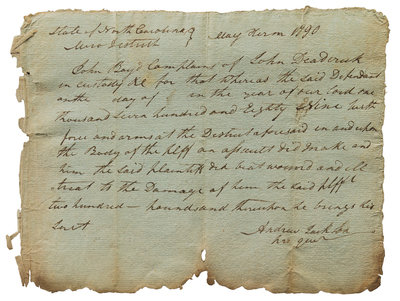 State of North Carolina
Mero District May Term 1790
John Boyd Complains of John Deaderick
in custody &c for that whereas the said Defendant
on the day of in the year of our Lord one
thousand seven hundred and Eighty Nine with
force and arms at the District aforesaid in and upon
the Body of the plff an assault did make and
him the said plaintiff did beat wound and ill
treat to the Damage of him the said plff
two hundred — pounds and thereupon he brings his
Suit
Andrew Jackson
pro quer